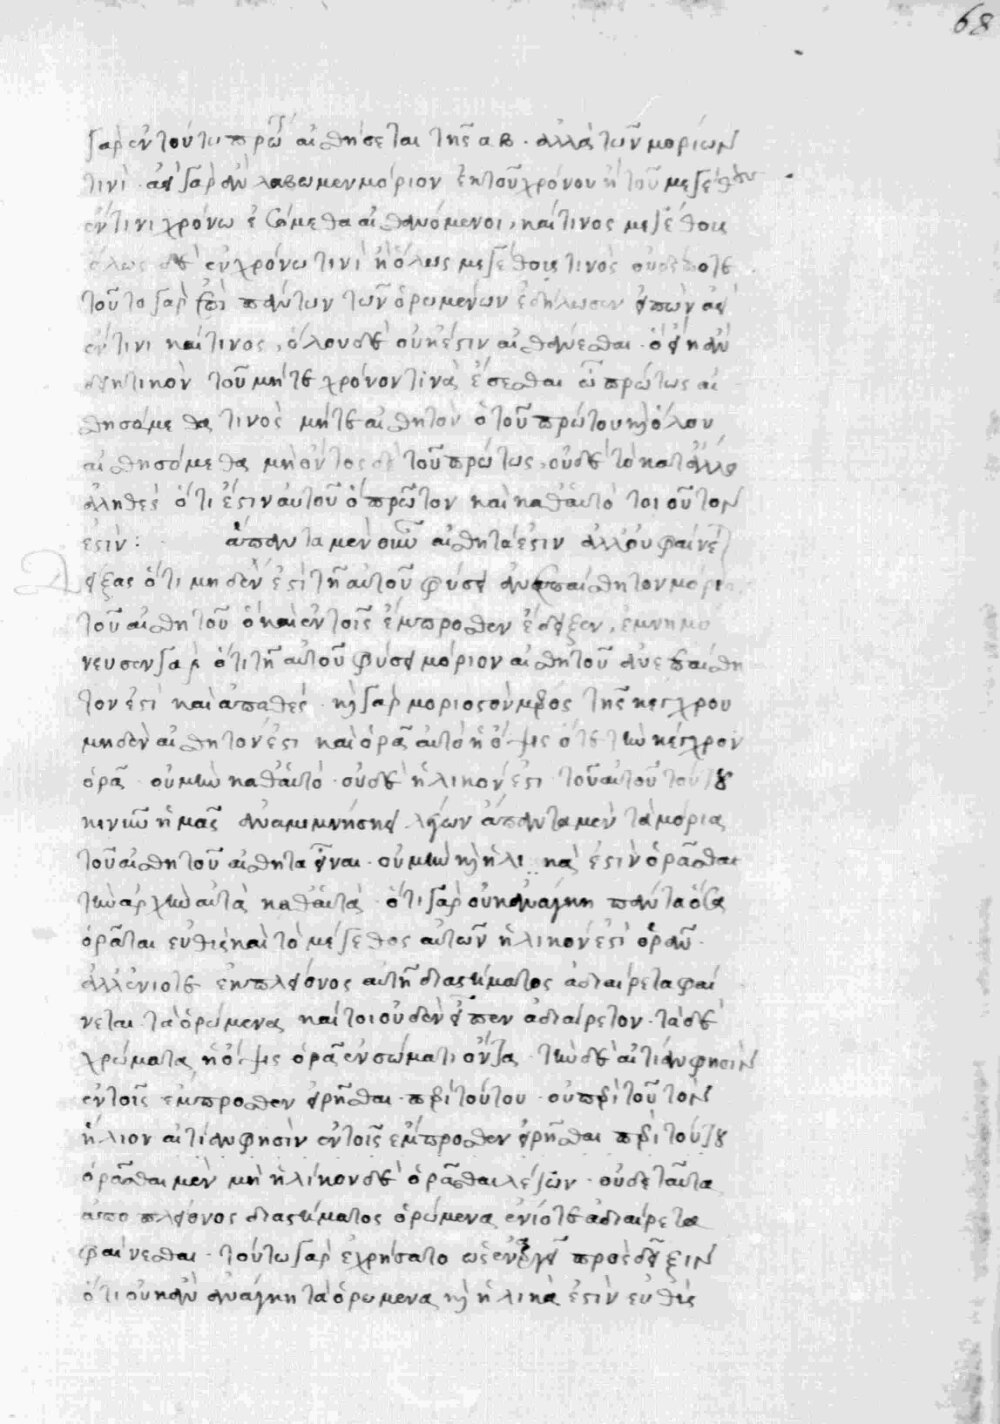 68
γὰρ ἐν τούτω πρώτω αἰσθήσεται τῆς αβ. ἀλλὰ τῶν μορίων
τινί. ἂν γὰρ ἂν λάβωμεν μόριον ἢ τοῦ χρόνου ἢ τοῦ μεγέθους
ἔν τινι χρόνω ἐσόμεθα αἰσθανόμενοι, καί τινος μεγέθους
ὅλως δὲ ἐν χρόνω τινὶ ἢ ὅλως μεγέθους τινὸς οὐδέποτε
τοῦτο γὰρ ἐπὶ πάντων τῶν ὁρωμένων ἐδήλωσεν εἰπὼν ἀεὶ
ἔν τινι καί τινος, ὅλου δὲ οὐκ ἔστιν αἰσθάνεσθαι.
τοῦ μήτε χρόνον τινὰ ἔσεσθαι ὧ πρώτως αἰ
σθησόμεθα τινὸς μήτε αἰσθητὸν οὗ τοῦ πρώτου καὶ ὅλου
αἰσθησόμεθα μὴ ὄντος δὲ τοῦ πρώτως, οὐδὲ τὸ κατ' ἄλλο
ἀληθὲς ὅτι ἔστιν αὐτοῦ ὃ πρῶτον καὶ καθ' αὑτὸ τοιοῦτον
ἐστίν: ἅπαντα μὲν οὖν αἰσθητά ἐστιν ἀλλ' οὐ φαίνεται
Δείξας ὅτι μηδέν ἐστι τῆ αὑτοῦ φύσει ἀνεπαίσθητον μόριον
τοῦ αἰσθητοῦ ὃ καὶ ἐν τοῖς ἔμπροσθεν ἔδειξεν, ἐμνημό
νευσεν γὰρ ὅτι τῆ αὑτοῦ φύσει μόριον αἰσθητοῦ ἀνεπαίσθη
τον ἐστὶ καὶ ἀπαθές. καὶ γὰρ μοριοστὸν μέρος τῆς κέγχρου
μηδὲν αἰσθητόν ἐστι καὶ ὁρᾶ αὐτὸ ἡ ὄψις ὅτε τὴν κέγχρον
ὁρᾶ. οὐ μὴν καθ' αὑτό. οὐδὲ ἡλίκον ἐστι. τοῦ αὐτοῦ τούτου
καὶ νῦν ἡμᾶς ἀναμιμνήσκει λέγων ἅπαντα μὲν τὰ μόρια
τοῦ αἰσθητοῦ αἰσθητὰ εἶναι. οὐ μὴν καὶ ἡλίκα ἐστὶν ὁρᾶσθαι
τὴν ἀρχὴν αὐτὰ καθ' αὑτά. ὅτι γὰρ οὐκ ἀνάγκη πάντα ὅσα
ὁρᾶται εὐθὺς καὶ τὸ μέγεθος αὐτῶν ἡλίκον ἐστὶ ὁρᾶν.
ἀλλ' ἐνίοτε ἐκ πλείονος αὐτῆ διαστήματος ἀδιαίρετα φαί
νεται τὰ ὁρώμενα καίτοι οὐδὲν εἶπεν ἀδιαίρετον. τὰ δὲ
χρώματα ἡ ὄψις ὁρᾶ ἐν σώματι ὄντα. τὴν δὲ αἰτίαν φησὶν
ἐν τοῖς ἔμπροσθεν εἰρῆσθαι περὶ τούτου. οὐ περὶ τοῦ τὸν
ἥλιον αἰτίαν φησὶν ἐν τοῖς ἔμπροσθεν εἰρῆσθαι περὶ τούτου
ὁρᾶσθαι μὲν μὴ ἡλίκον δὲ ὁρᾶσθαι λέγων. οὐδὲ ταῦτα
ἀπὸ πλείονος διαστήματος ὁρώμενα ἐνίοτε ἀδιαίρετα
φαίνεσθαι. τούτω γὰρ ἐχρήσατο ὡς ἐναργεῖ πρὸς δεῖξιν
ὅτι οὐκ ἂν ἀνάγκη τὰ ὁρώμενα καὶ ἡλίκα ἐστὶν εὐθὺς